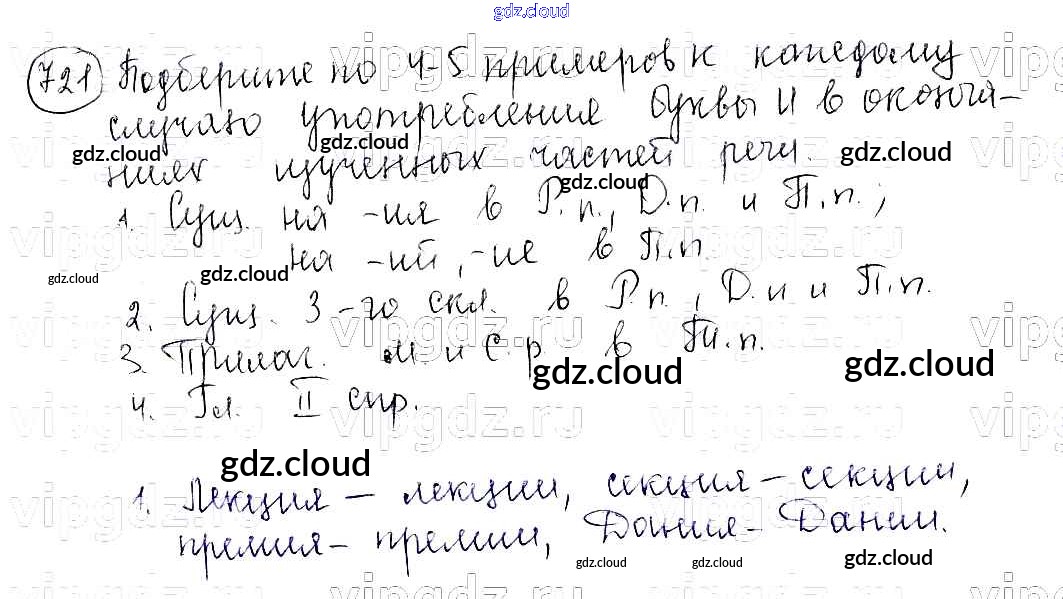 gdz.cloud
721 Подберите по 4-5 примеров к каждому
случаю употребления буквы и в оконча-
ниях изученных частей речи.
gdz.cloud gdz.cloud gdz.cloud gdz.cloud
1. Сущ. на -ия в Р.п., Д.п. и П.п.;
на -ий, -ие в П.п.
gdz.cloud gdz.cloud gdz.cloud
2. Сущ. 3-го скл. в Р.п., Д.п и П.п.
3. Прилаг. м. и с.р в Тв.п.
gdz.cloud gdz.cloud
4. Гл. II спр.
gdz.cloud
1. Лекция – лекции, секция – секции,
премия – премии, Дания – Дании.
gdz.cloud gdz.cloud gdz.cloud
vipgdz.ru